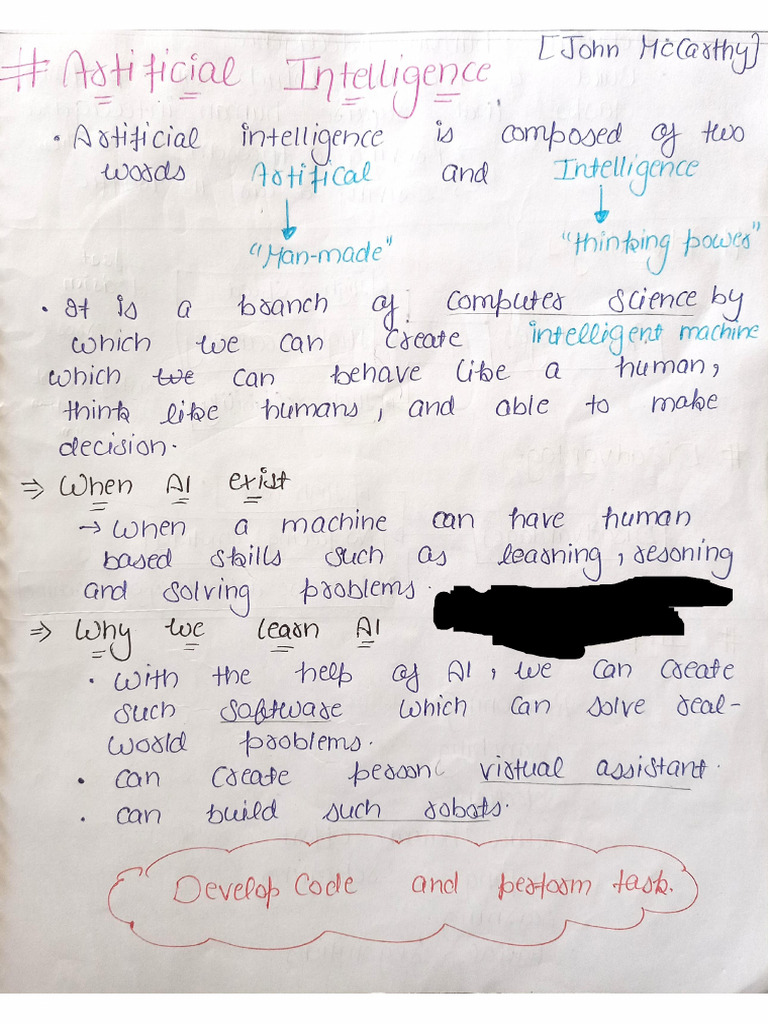 [John McCarthy]
# Artificial Intelligence
• Artificial intelligence is composed of two
words Artifical and Intelligence
"Man-made" "thinking power"
• It is a branch of computer science by
which we can create intelligent machine
which we can behave like a human,
think like humans, and able to make
decision.
⇒ When AI exist
→ When a machine can have human
based skills such as learning, resoning
and solving problems.
⇒ Why we learn AI
• With the help of AI, we can create
such software which can solve real-
world problems.
• can create person virtual assistant.
• can build such robots.
Develop Code and perform task.